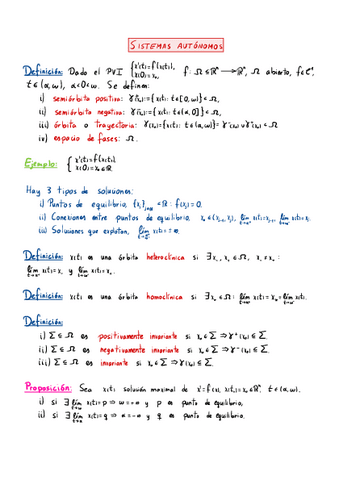 SISTEMAS AUTÓNOMOS
Definición: Dado el PVI { x'(t)=f(x(t)), x(0)=x₀, f: Ω⊆ℝⁿ→ℝⁿ, Ω abierto, f∈C¹,
t∈(α,ω), α<0<ω. Se definen:
i) semiórbita positiva: γ⁺(x₀):={x(t): t∈[0,ω)}⊂Ω,
ii) semiórbita negativa: γ⁻(x₀):={x(t): t∈(α,0]}⊂Ω,
iii) órbita o trayectoria: γ(x₀):={x(t): t∈(α,ω)}=γ⁺(x₀)∪γ⁻(x₀)⊂Ω
iv) espacio de fases: Ω.
Ejemplo: { x'(t)=f(x(t)), x(0)=x₀∈ℝ
Hay 3 tipos de soluciones:
i) Puntos de equilibrio,
ii) Conexiones entre puntos de equilibrio,
iii) Soluciones que explotan,
Definición: x(t) es una órbita heteroclínica si ∃
y
Definición: x(t) es una órbita homoclínica si ∃
Definición:
i) Σ⊆Ω es positivamente invariante si x₀∈Σ ⇒ γ⁺(x₀)⊆Σ.
ii) Σ⊆Ω es negativamente invariante si x₀∈Σ ⇒ γ⁻(x₀)⊆Σ.
iii) Σ⊆Ω es invariante si x₀∈Σ ⇒ γ(x₀)⊆Σ.
Proposición: Sea x(t) solución maximal de x'=f(x), x(t₀)=x₀∈ℝⁿ, t∈(α,ω).
i) si ∃ lím x(t)=p ⇒ ω=∞ y p es punto de equilibrio,
ii) si ∃ lím x(t)=q ⇒ α=-∞ y q es punto de equilibrio.